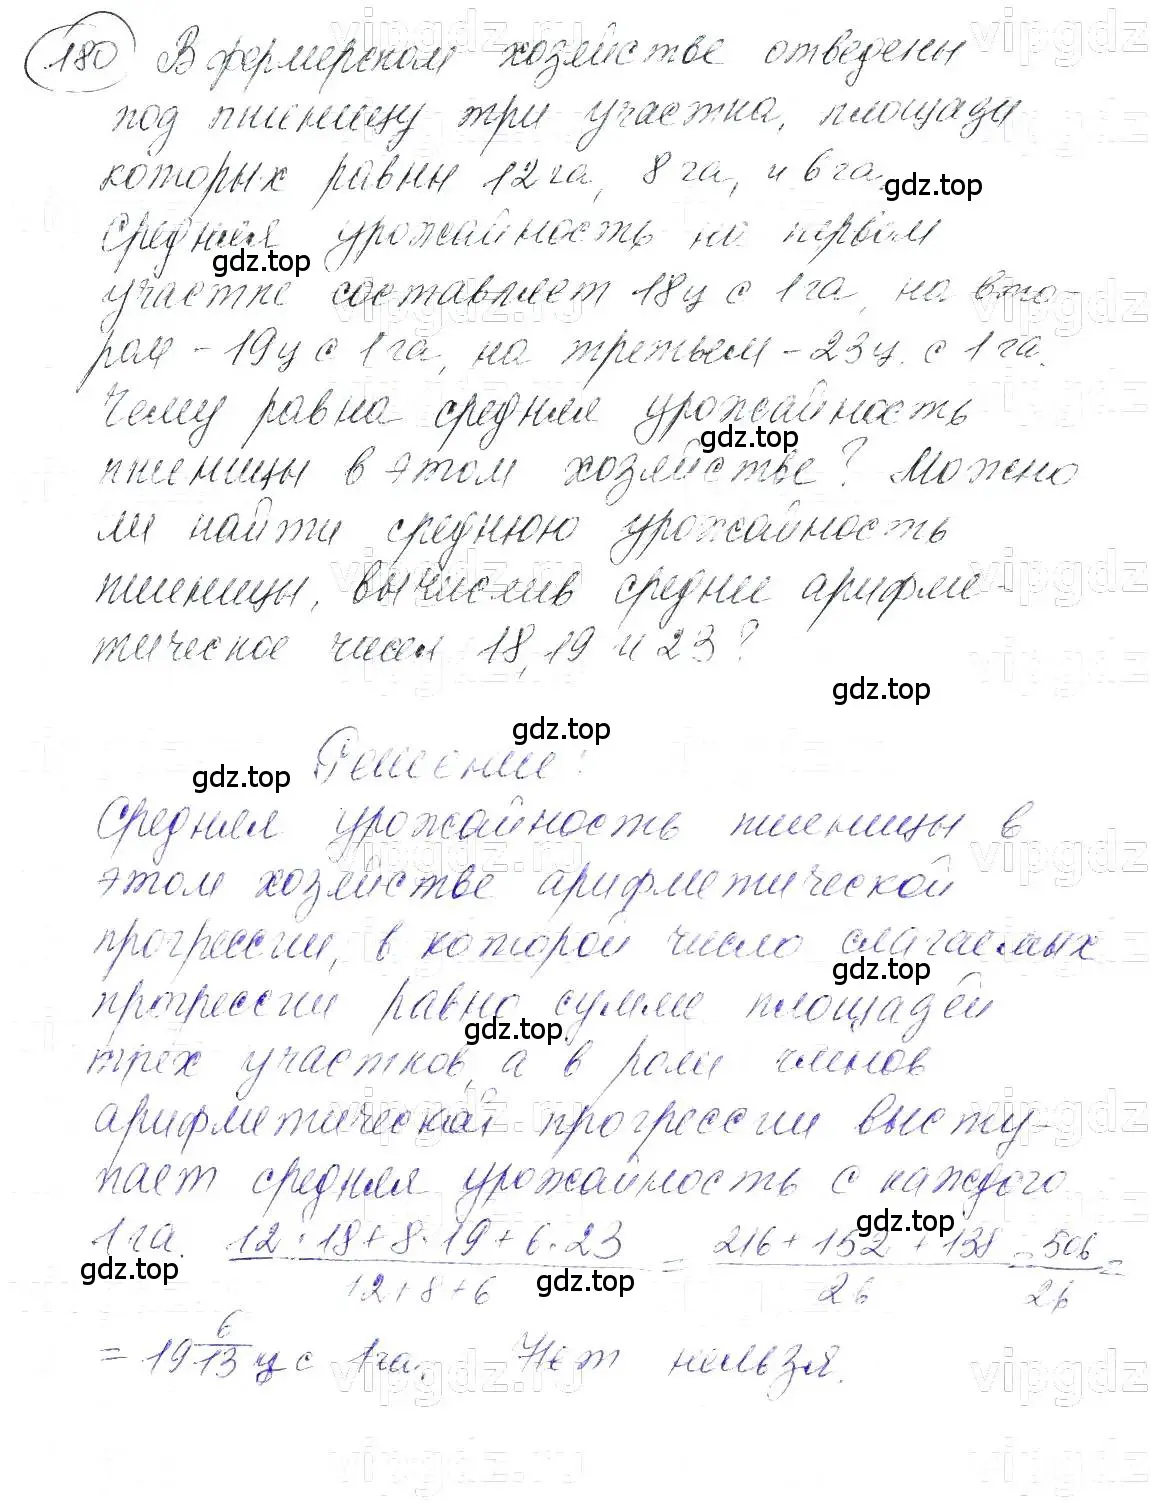 180 В фермерском хозяйстве отведены
под пшеницу три участка, площади
которых равны 12 га, 8 га, и 6 га.
Средняя урожайность на первом
участке составляет 18 ц с 1 га, на вто-
ром - 19 ц с 1 га, на третьем - 23 ц. с 1 га.
Чему равна средняя урожайность
пшеницы в этом хозяйстве? Можно
ли найти среднюю урожайность
пшеницы, вычислив среднее арифме-
тическое чисел 18, 19 и 23?
Решение:
Средняя урожайность пшеницы в
этом хозяйстве арифметической
прогрессии, в которой число слагаемых
прогрессии равно сумме площадей
трех участков, а в роли членов
арифметической прогрессии высту-
пает средняя урожайность с каждого
1 га. (12·18+8·19+6·23)/(12+8+6) = (216+152+138)/26 = 506/26 =
= 19 6/13 ц с 1 га. Нет нельзя.
gdz.top
gdz.top
gdz.top
gdz.top
gdz.top
gdz.top
gdz.top
gdz.top
gdz.top
gdz.top
gdz.top
vipgdz.ru